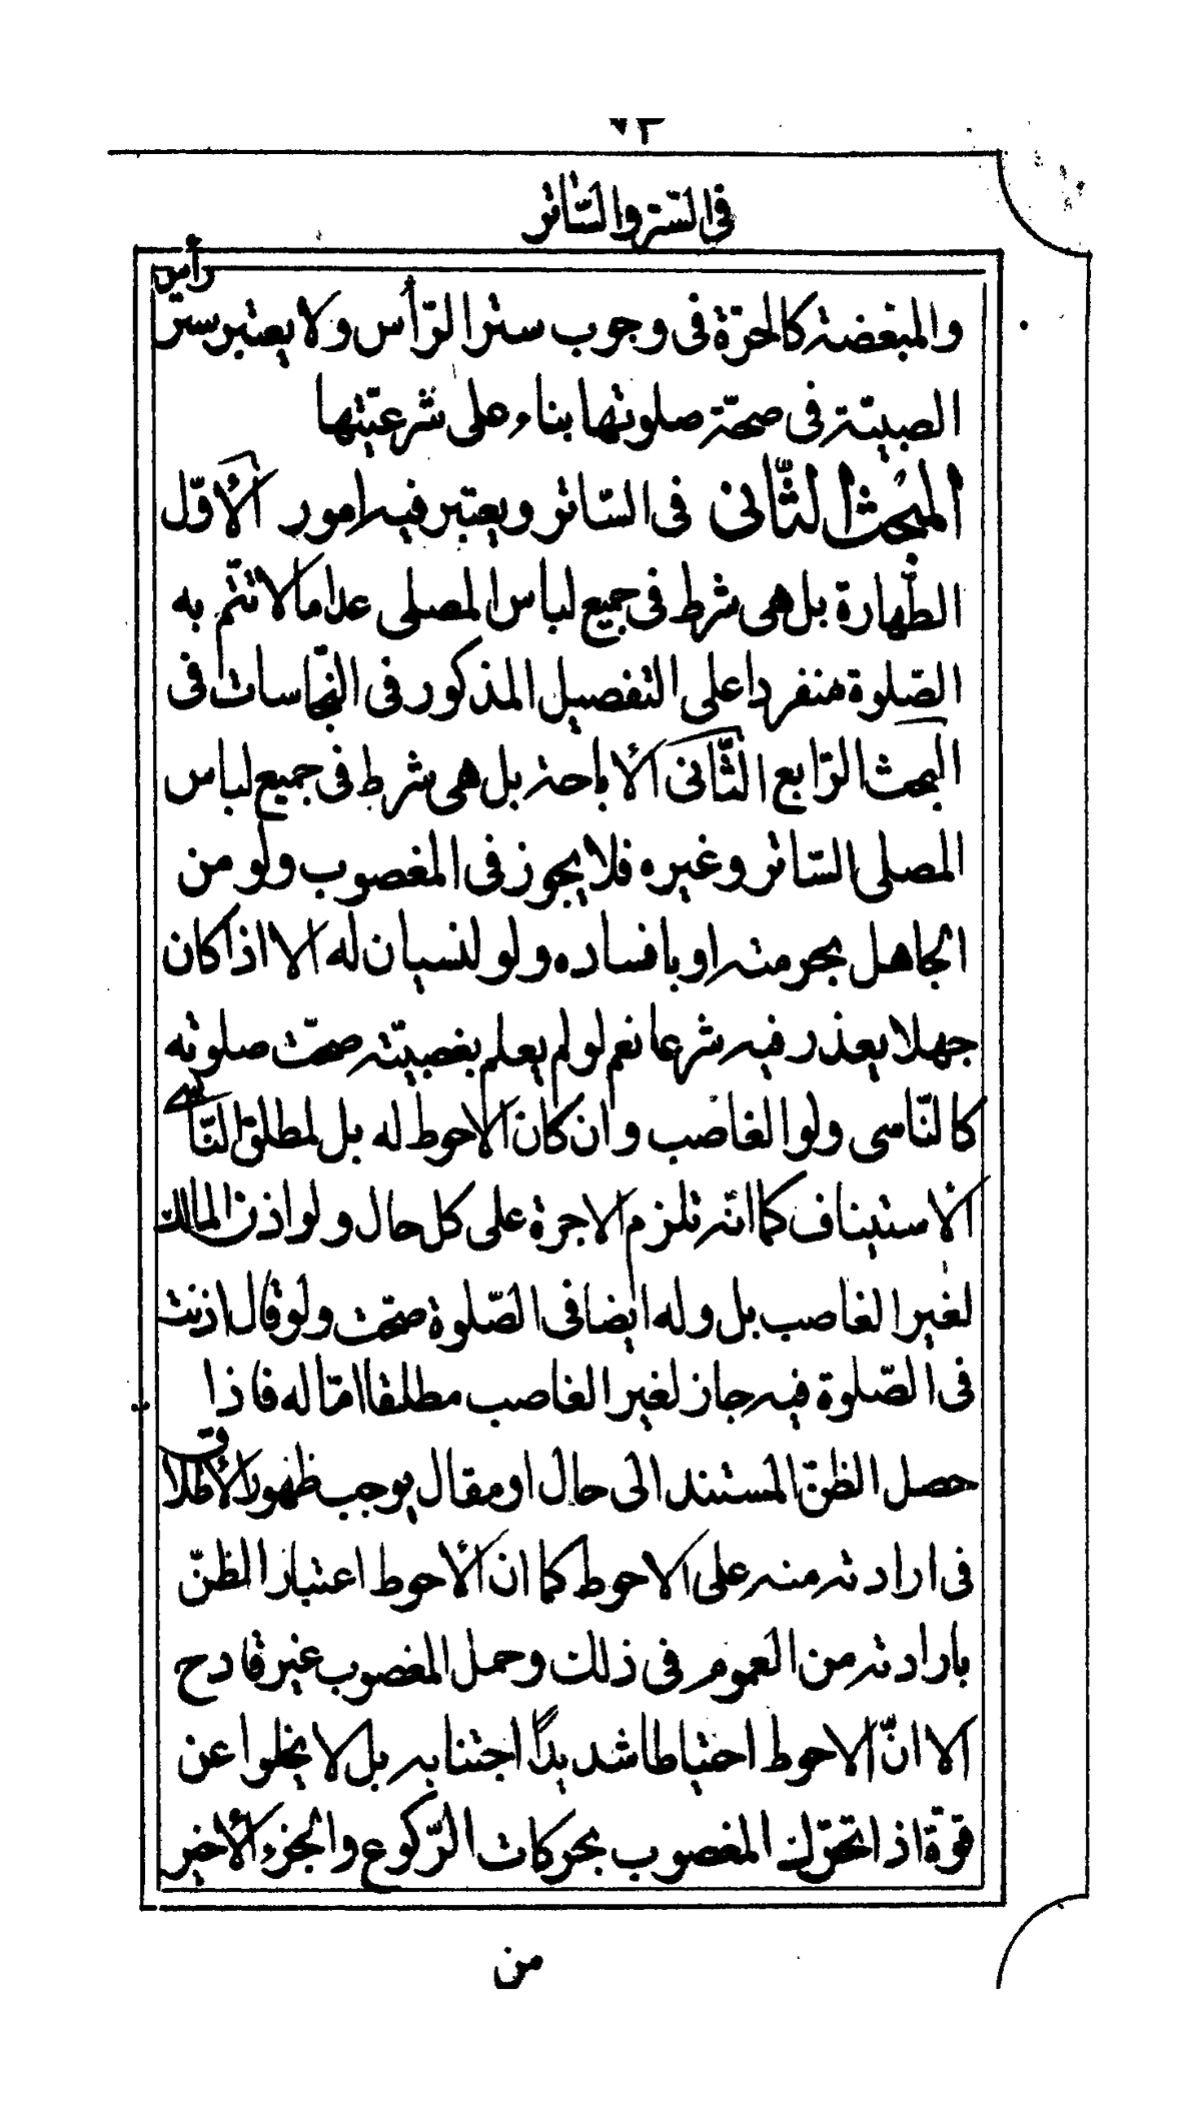 ٧٣
فى الستر والسّاتر
والمبغضة كالحرّة فى وجوب ستر الرّأس ولا يعتبر ستر رأس
الصبيّة فى صحّة صلوتها بناء على شرعيّتها
المبحث الثّانى فى السّاتر ويعتبر فيه امور الأوّل
الطّهارة بل هى شرط فى جميع لباس المصلى عدا ما لا تتّم به
الصّلوة منفردا على التفصيل المذكور فى النّجاسات فى
البحث الرّابع الثّانى الأباحة بل هى شرط فى جميع لباس
المصلى السّاتر وغيره فلا يجوز فى المغصوب ولو من
الجاهل بحرمته او بافساده ولو لنسيان له الا اذا كان
جهلا يعذر فيه شرعا نعم لو لم يعلم بغصبيّته صحّت صلوته
كالنّاسى ولو الغاصب وان كان الاحوط له بل لمطلق النّاسى
الاستيناف كما انّه تلزم الاجرة على كل حال ولو اذن المالك
لغير الغاصب بل وله ايضا فى الصّلوة صحّت ولو قال اذنت
فى الصّلوة فيه جاز لغير الغاصب مطلقا امّا له فاذا
حصل الظنّ المستند الى حال او مقال يوجب ظهور الأطلاق
فى ارادته منه على الاحوط كما ان الأحوط اعتبار الظنّ
بارادته من العموم فى ذلك وحمل المغصوب غير قادح
الا انّ الاحوط احتياطا شديدًا اجتنابه بل لا يخلوا عن
قوة اذا تحرّك المغصوب بحركات الرّكوع والجزء الأخير
من